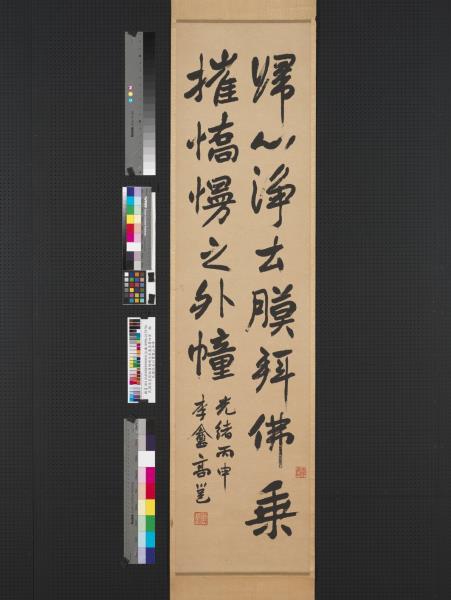 歸心淨土膜拜佛乘
摧憍慢之外幢
光緒丙申
李盦高邕